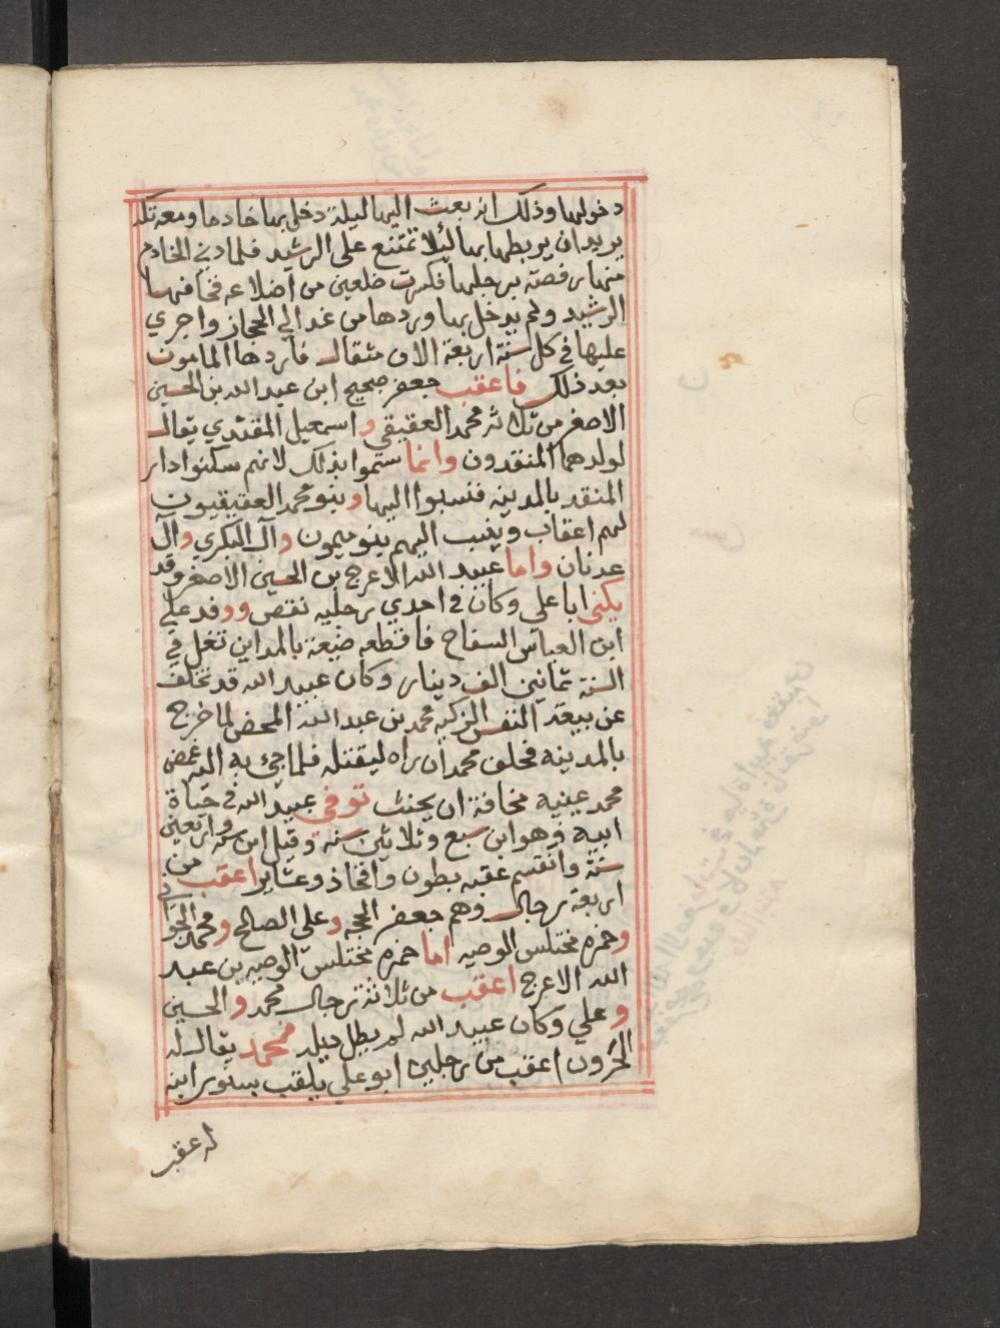 دخولها وذلك انه بعث اليها ليلة دخل بها خادما ومعه تكه
يريد ان يربطها بها لئلا تمتنع على الرشيد فلما دنى الخادم
منها رفصته برجلها فكسرت ضلعين من اضلاعه فخافها
الرشيد ولم يدخل بها وردها من غد الى الحجاز واجرى
عليها في كل سنة اربعة الاف مثقال فاردها المامون
بعد ذلك فاعقب جعفر صحيح ابن عبد الله بن الحسين
الاصغر من ثلاثة محمد العقيقي و اسمعيل المنقدي يقال
لولدهما المنقدون وانما سموا بذلك لانهم سكنوا دار
المنقد بالمدينه فنسبوا اليها وبنو محمد العقيقيون
لهم اعقاب وينسب اليهم بنو ميمون وآل البكري وآل
عدنان واما عبيد الله الاعرج بن الحسين الاصغر وقد
يكنى ابا علي وكان في احدي رجليه نقص ووفد على
ابن العباس السفاح فاقطعه ضيعة بالمداين تغل في
السنة ثمانين الف دينار وكان عبيد الله قد تخلف
عن بيعة النفس الزكيه محمد بن عبد الله المحض لما خرج
بالمدينه فحلف محمد ان راه ليقتله فلما جيء به اليه غمض
محمد عينيه مخافة ان يحنث توفى عبيد الله في حياة
ابيه وهو ابن سبع وثلاثين سنة وقيل ابن ست واربعين
سنة وانقسم عقبه بطون وافخاذ وعشاير اعقب من
اربعة رجال وهم جعفر الحجه وعلى الصالح ومحمد الجواني
وحمزه مختلس الوصيه اما حمزه مختلس الوصيه بن عبيد
الله الاعرج اعقب من ثلاثة رجال محمد والحسين
وعلي وكان عبيد الله لم يطل محمد يقال له
الحرون اعقب من رجلين ابو علي يلقب بسنور ابنه
له عقب